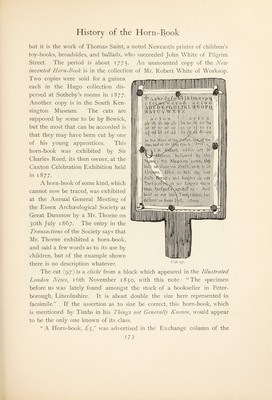 History of the Horn-Book
but it is the work of Thomas Saint, a noted Newcastle printer of children's
toy-books, broadsides, and ballads, who succeeded John White of Pilgrim
Street. The period is about 1775. An unmounted copy of the New
invented Horn-Book is in the collection of Mr. Robert White of Worksop.
Two copies were sold for a guinea
each in the Hugo collection dis-
persed at Sotheby's rooms in 1877.
Another copy is in the South Ken-
sington Museum. The cuts are
supposed by some to be by Bewick,
but the most that can be accorded is
that they may have been cut by one
of his young apprentices. This
horn-book was exhibited by Sir
Charles Reed, its then owner, at the
Caxton Celebration Exhibition held
in 1877.
A horn-book of some kind, which
cannot now be traced, was exhibited
at the Annual General Meeting of
the Essex Archæological Society at
Great Dunmow by a Mr. Thorne on
30th July 1867. The entry in the
Transactions of the Society says that
Mr. Thorne exhibited a horn-book,
and said a few words as to its use by
children, but of the example shown
there is no description whatever.
Cut 97.
The cut (97) is a cliché from a block which appeared in the Illustrated
London News, 16th November 1850, with this note: "The specimen
before us was lately found amongst the stock of a bookseller in Peter-
borough, Lincolnshire. It is about double the size here represented in
facsimile." If the assertion as to size be correct, this horn-book, which
is mentioned by Timbs in his Things not Generally Known, would appear
to be the only one known of its class.
"A Horn-book, £5," was advertised in the Exchange column of the
173